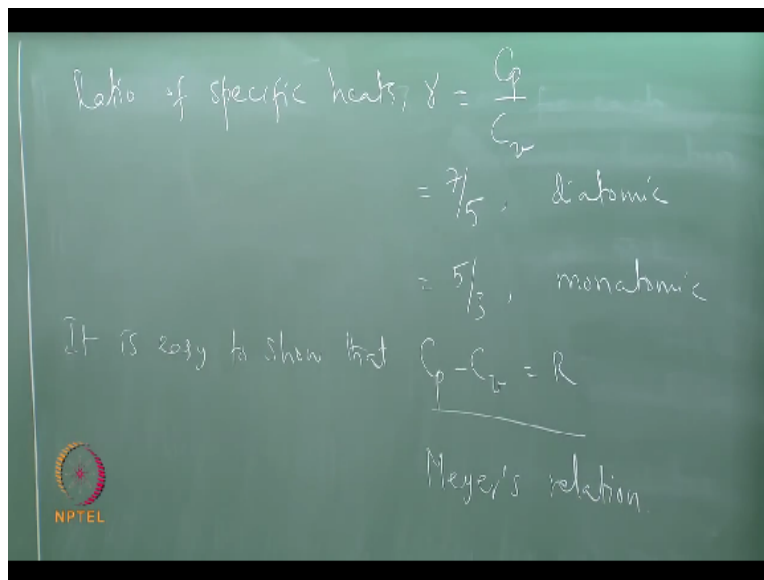 Ratio of specific heats, γ = Cp/Cv
= 7/5, diatomic
= 5/3, monatomic
It is easy to show that Cp - Cv = R
Meyer's relation.
NPTEL